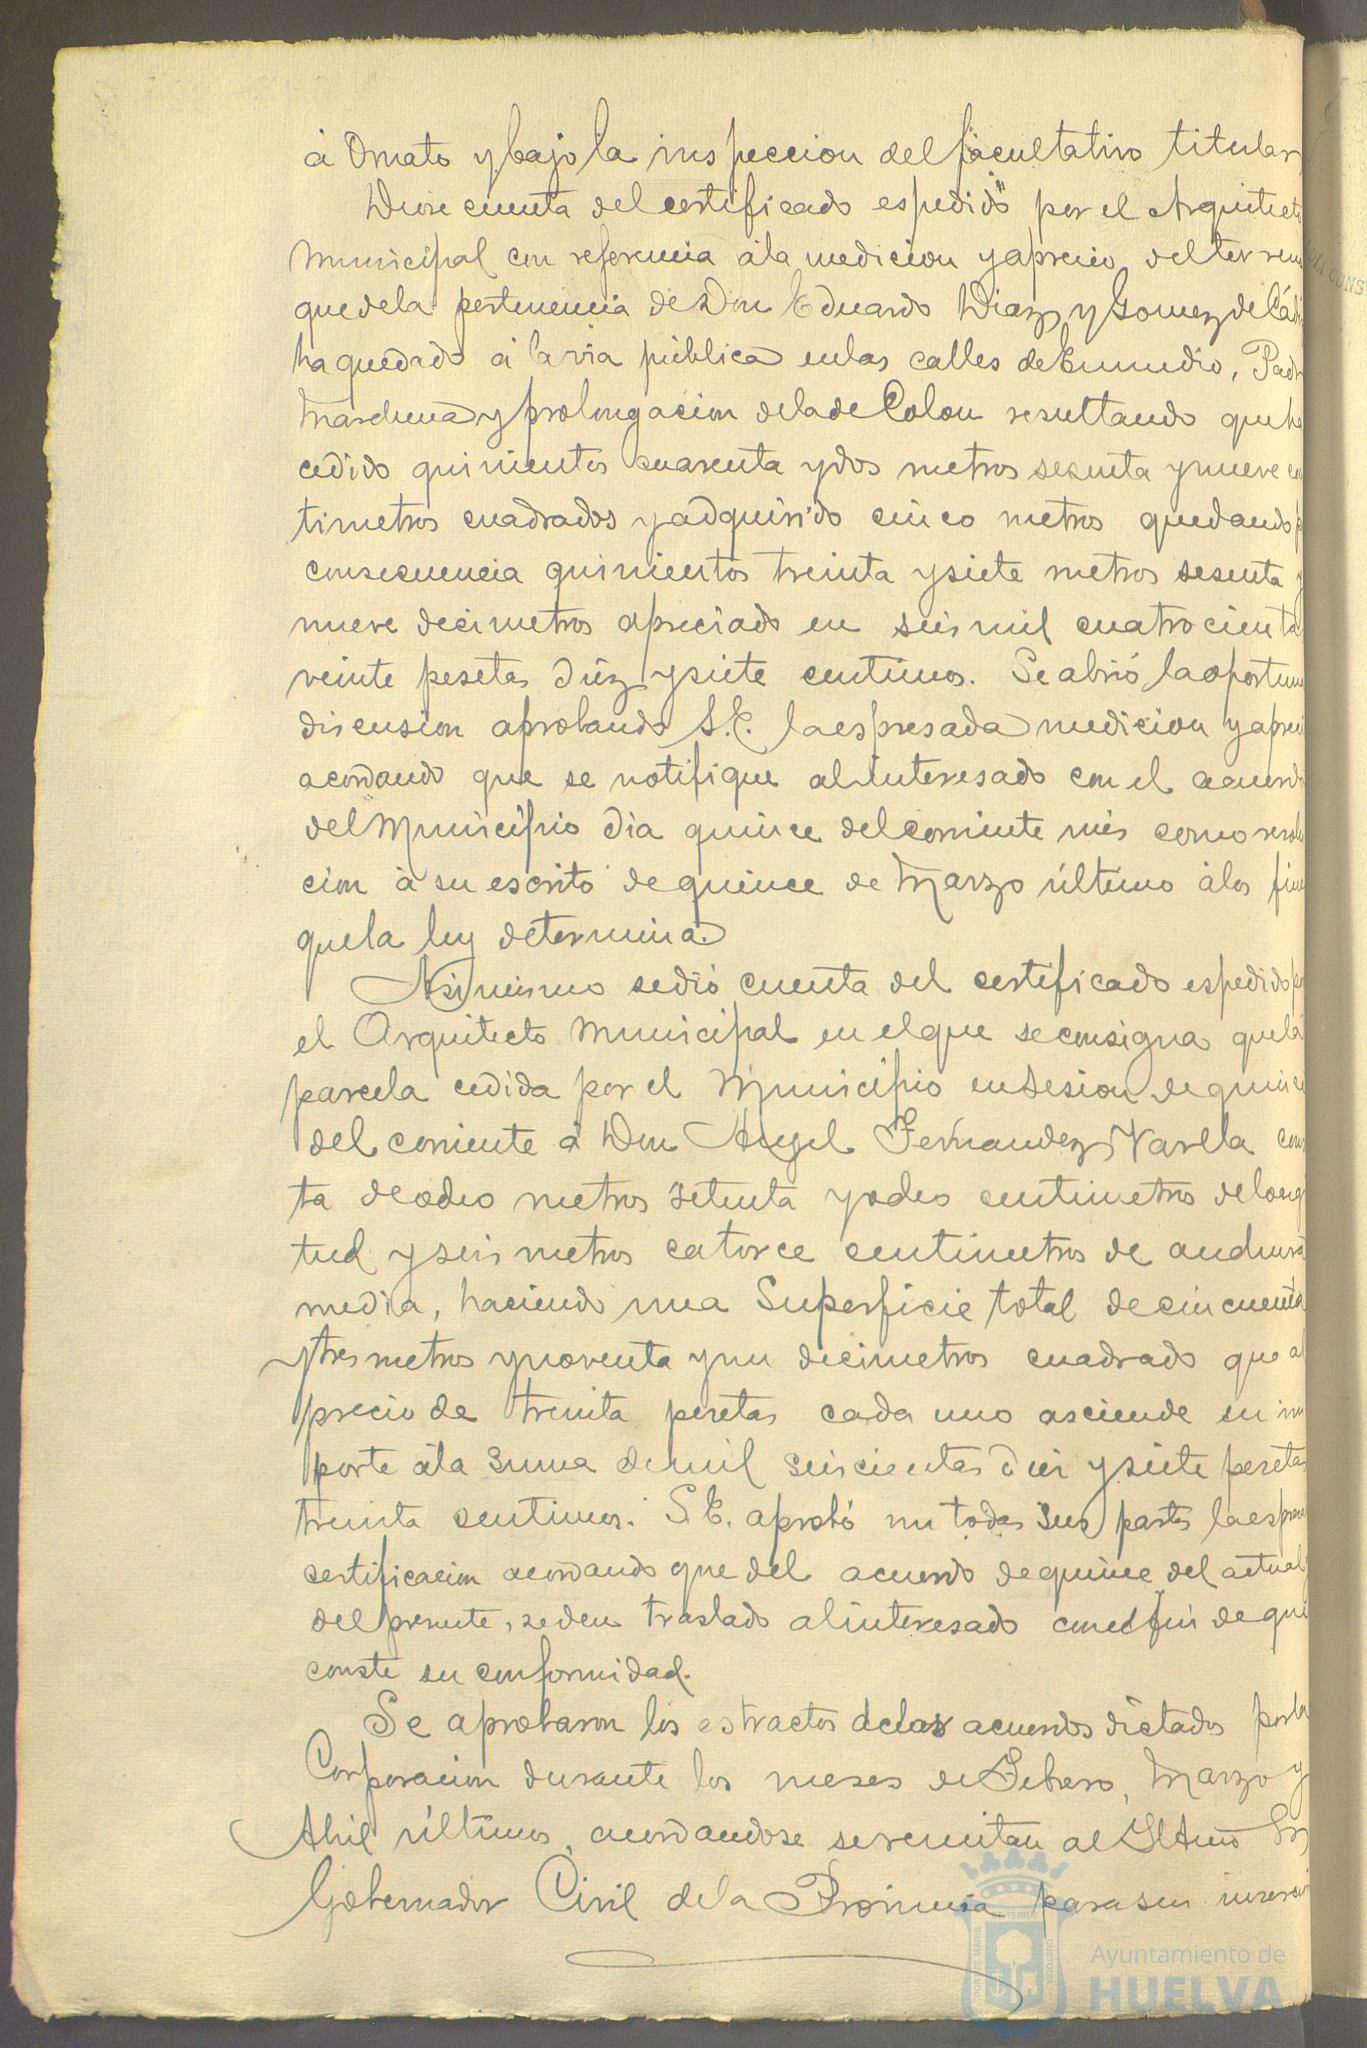 á Ornato y bajo la inspeccion del facultativo titular
Diose cuenta del certificado espedido por el Arquitecto
Municipal con referencia á la medicion y aprecio del terreno
que de la pertenencia de Don Eduardo Diaz y Gomez de Cádiz
ha quedado á la via pública en las calles de Enmedio, Padre
Marchena y prolongacion de la de Colon resultando que ha
cedido quinientos cuarenta y dos metros sesenta y nueve cen
timetros cuadrados y adquirido cinco metros quedando
consecuencia quinientos treinta y siete metros sesenta y
nueve decimetros apreciado en seis mil cuatrocienta
veinte pesetas diez y siete centimos. Se abrió la oportuna
discusion aprobando S.E. la espresada medicion y aprecio
acordando que se notifique al interesado con el acuerdo
del Municipio dia quince del corriente mes como resolu
cion á su escrito de quince de Marzo último á los fines
que la ley determina.
Asimismo se dió cuenta del certificado espedido por
el Arquitecto Municipal en el que se consigna que la
parcela cedida por el Municipio en sesion de quince
del corriente á Don Angel Fernandez Varela cons
ta de ocho metros setenta y ocho centimetros de longi
tud y seis metros catorce centimetros de anchura
media, haciendo una Superficie total de cincuenta
y tres metros y noventa y un decimetros cuadrado que al
precio de treinta pesetas cada uno asciende su im
porte á la suma de mil seiscientas diez y siete pesetas
treinta centimos. S.E. aprobó en todas sus partes la espresa
certificacion acordando que del acuerdo de quince del actual y
del presente, se den traslado al interesado con el fin de que
conste su conformidad.
Se aprobaron los estractos de las acuerdos dictados por la
Corporacion durante los meses de Febrero, Marzo y
Abril últimos, acordandose se remitan al Iltmo Sr
Gobernador Civil de la Provincia para su insercion
Ayuntamiento de
HUELVA